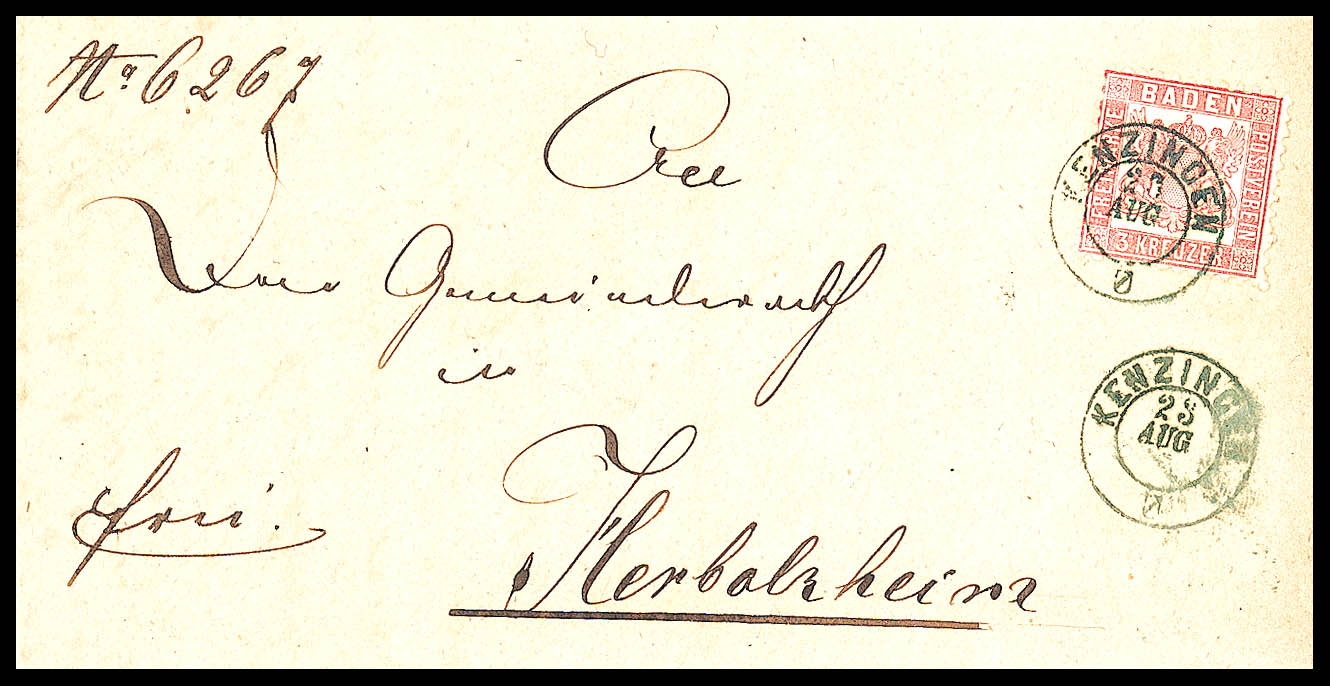 No 6267
An
den Gemeinderath
in
Herbolzheim
frei.
BADEN
FREIMARKE
POSTVEREIN
3 KREUZER
KENZINGEN
28
AUG
KENZINGEN
28
AUG